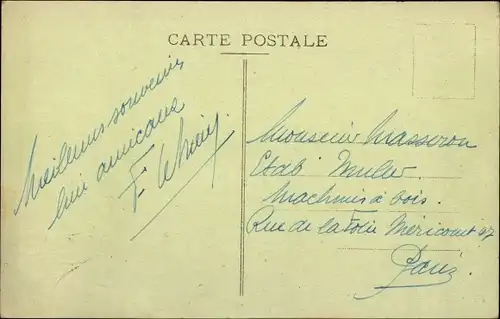 CARTE POSTALE
Meilleurs souvenirs
bien amicaux
F.
Monsieur Masseron
Etab Muller
Machines à bois.
Rue de la Folie Méricourt 47
Paris